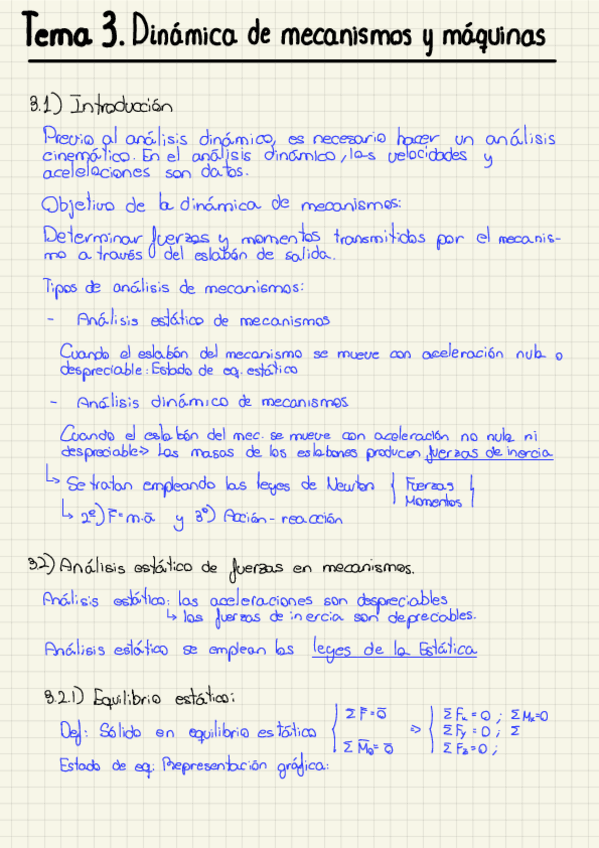 Tema 3. Dinámica de mecanismos y máquinas
3.1) Introducción
Previo al análisis dinámico, es necesario hacer un análisis
cinemático. En el análisis dinámico, las velocidades y
aceleleciones son datos.
Objetivo de la dinámica de mecanismos:
Determinar fuerzas y momentos transmitidos por el mecanis-
mo a través del eslabón de salida.
Tipos de análisis de mecanismos:
- Análisis estático de mecanismos
Cuando el eslabón del mecanismo se mueve con aceleración nula o
despreciable: Estado de eq. estático
- Análisis dinámico de mecanismos
Cuando el eslabón del mec. se mueve con aceleración no nula ni
despreciable > las masas de los eslabones producen fuerzas de inercia
↳ Se tratan empleando las leyes de Newton { Fuerzas
Momentos }
↳ 2º) F̄=m·ā y 3º) Acción-reacción
3.2) Análisis estático de fuerzas en mecanismos.
Análisis estático: las aceleraciones son despreciables
↳ las fuerzas de inercia son deprecables.
Análisis estático se emplean las leyes de la Estática
3.2.1) Equilibrio estático:
Def: Sólido en equilibrio estático { Σ F̄=ō ⇒ { ΣFx=0 ; ΣMx=0
ΣFy=0 ; Σ
Σ M̄o=ō ΣFz=0 ;
Estado de eq: Representación gráfica: